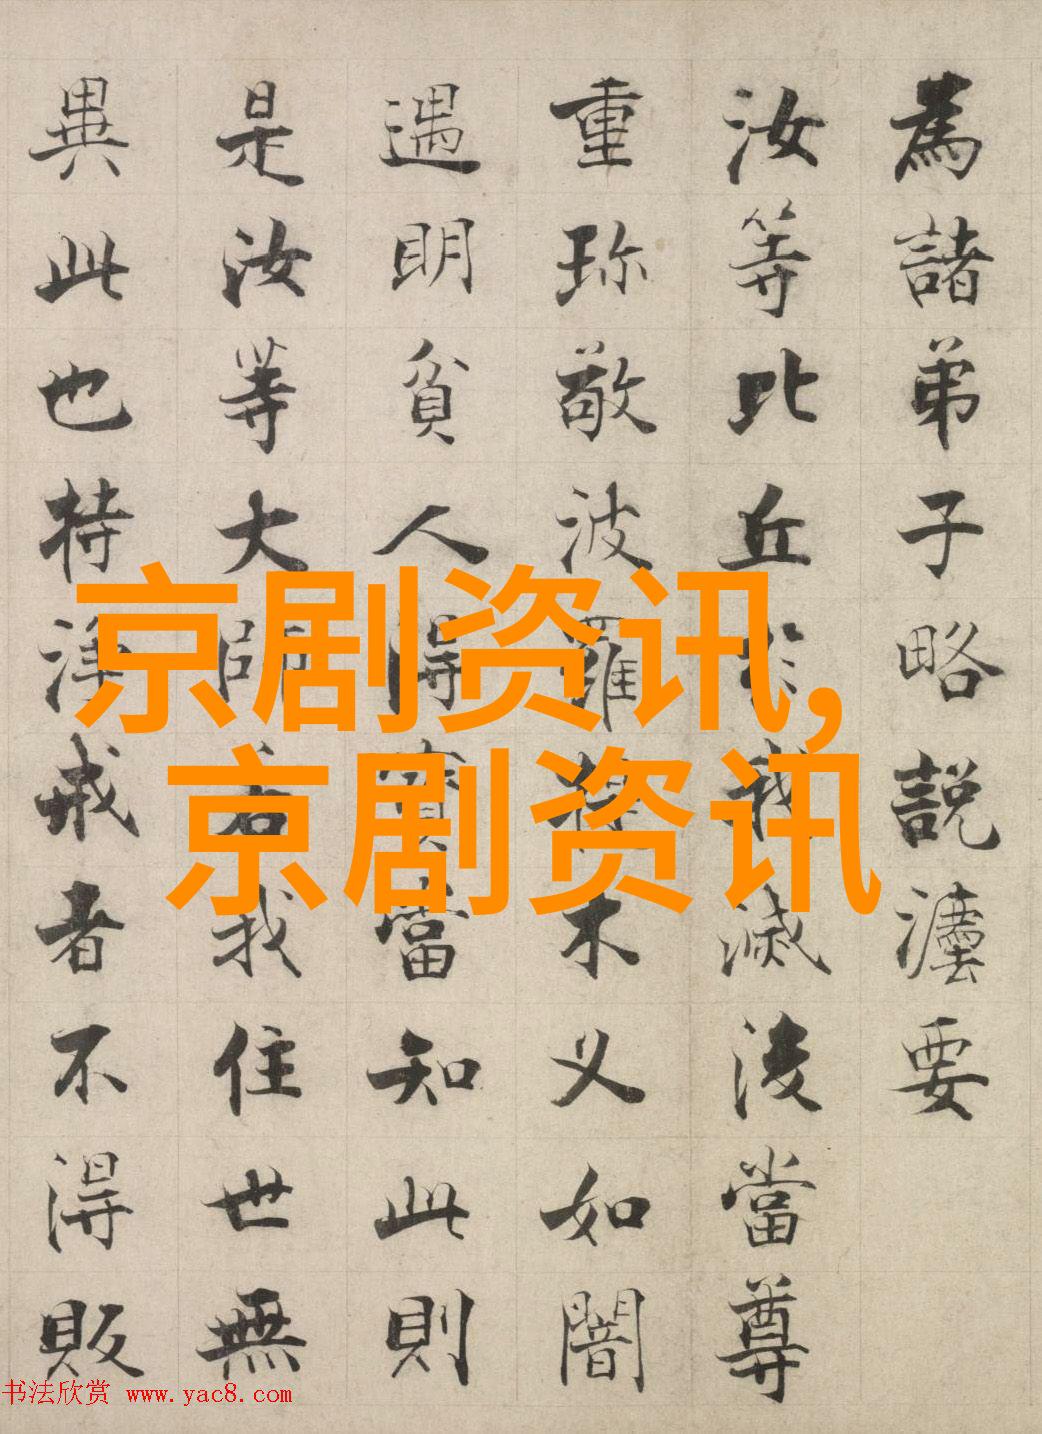 為諸弟子略説灋要
汝等比丘於我滅後當尊
重珎敬波羅提木叉如闇
遇明貧人得寶當知此則
是汝等大師若我住世無
異此也持淨戒者不得販
京剧资讯,
京剧资讯
书法欣赏 www.yac8.com